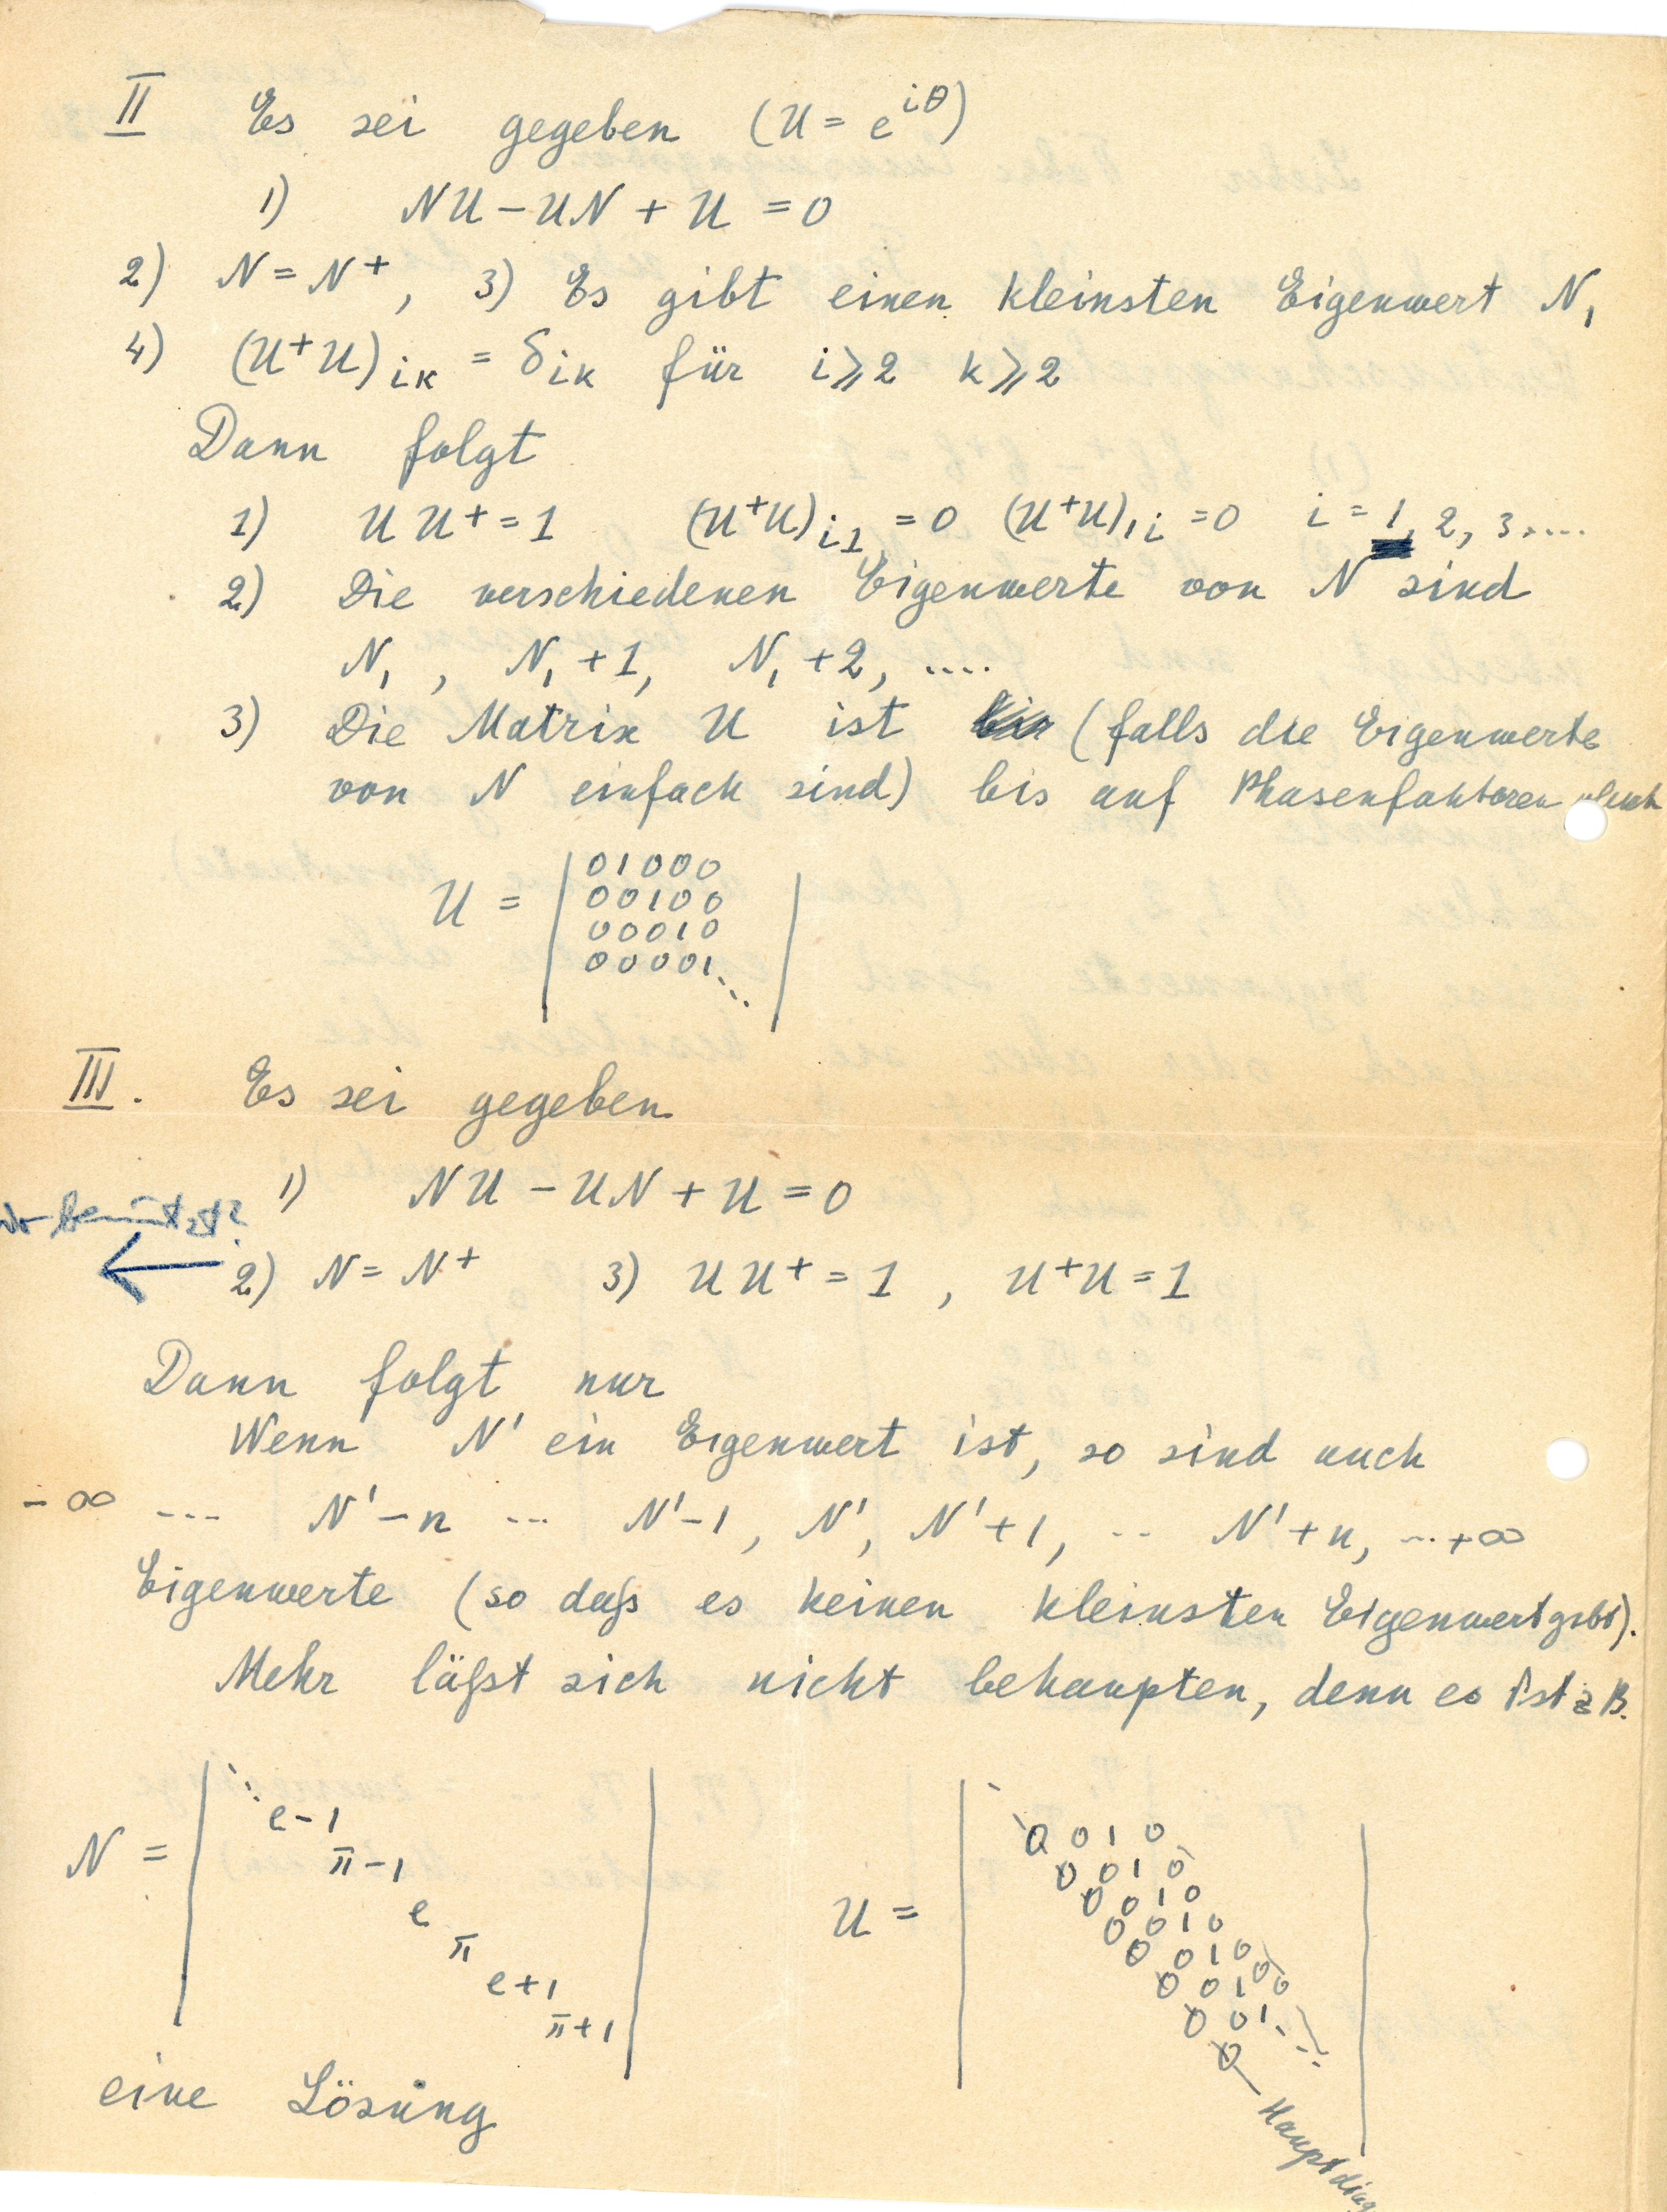 II Es sei gegeben (U = e^{iθ})
1) NU - UN + U = 0
2) N = N⁺, 3) Es gibt einen kleinsten Eigenwert N₁
4) (U⁺U)ᵢₖ = δᵢₖ für i⩾2 k⩾2
Dann folgt
1) U U⁺ = 1 (U⁺U)ᵢ₁ = 0 (U⁺U)₁ᵢ = 0 i = 1, 2, 3....
2) Die verschiedenen Eigenwerte von N sind
N₁, N₁ + 1, N₁ + 2, ....
3) Die Matrix U ist (falls die Eigenwerte
von N einfach sind) bis auf Phasenfaktoren gleich
U = | 0 1 0 0 0
0 0 1 0 0
0 0 0 1 0
0 0 0 0 1 ... |
III. Es sei gegeben
1) NU - UN + U = 0
benützt?
← 2) N = N⁺ 3) U U⁺ = 1, U⁺U = 1
Dann folgt nur
Wenn N' ein Eigenwert ist, so sind auch
-∞ ... N'-n ... N'-1, N', N'+1, .. N'+n, ...+∞
Eigenwerte (so daß es keinen kleinsten Eigenwert gibt).
Mehr läßt sich nicht behaupten, denn es ist z B.
N = | e-1
π-1
e
π
e+1
π+1 |
U = | 0 0 1 0
0 0 1 0
0 0 1 0
0 0 1 0
0 0 1 0
0 0 1 0 0
0 0 1
0 |
Hauptdiag
eine Lösung